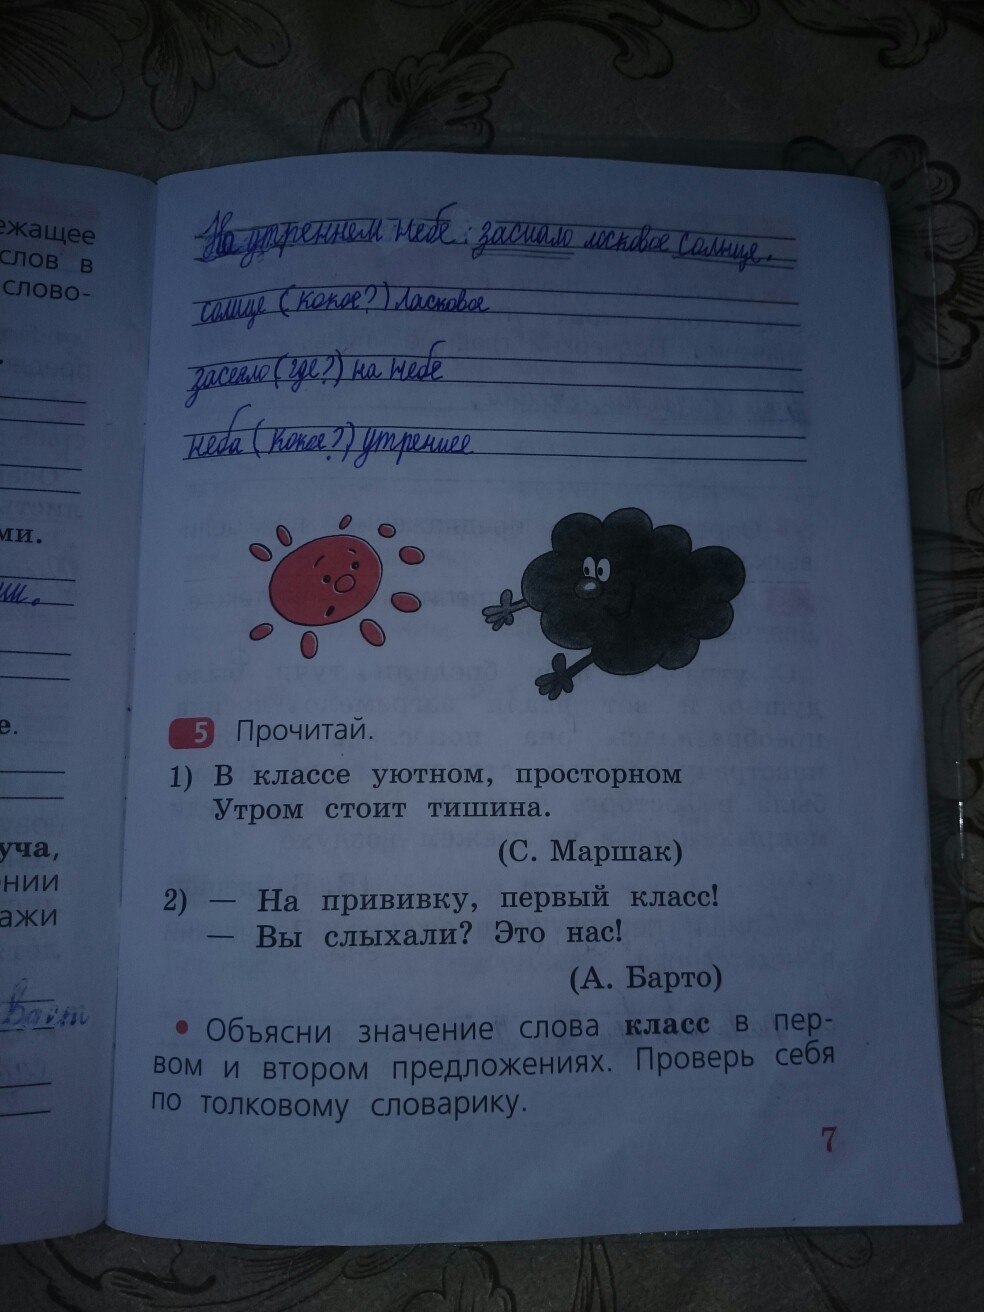 ежащее
слов в
слово-
ми.
е.
уча,
ении
ажи
На утреннем небе засияло ласковое солнце.
солнце (какое?) ласковое
засеяло (где?) на небе
неба (какое?) утреннее
5 Прочитай.
1) В классе уютном, просторном
Утром стоит тишина.
(С. Маршак)
2) — На прививку, первый класс!
— Вы слыхали? Это нас!
(А. Барто)
• Объясни значение слова класс в пер-
вом и втором предложениях. Проверь себя
по толковому словарику.
7